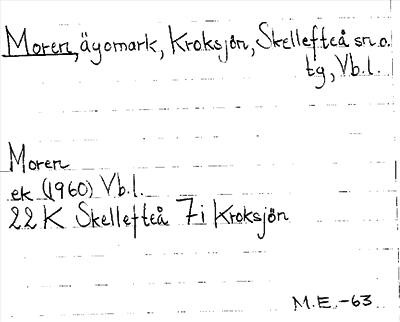 Moren, ägomark, Kroksjön, Skellefteå sn. o.
tg, Vb. l.
Moren
ek (1960) Vb. l.
22 K Skellefteå 7i Kroksjön
M. E. -63